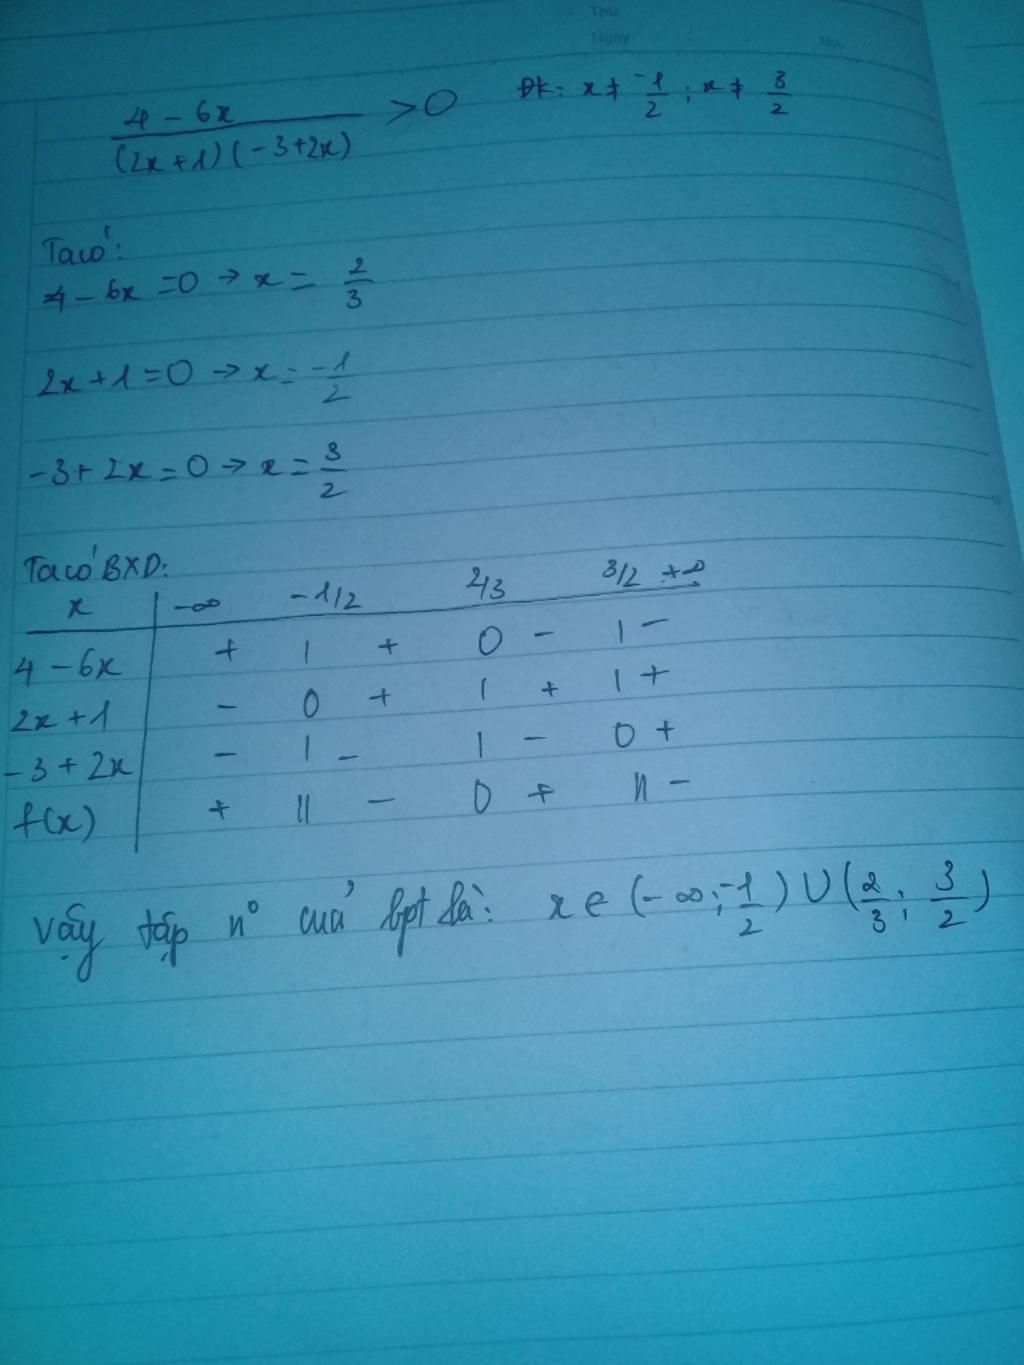 Thứ
Ngày No.
4 - 6x / (2x+1)(-3+2x) > 0 ĐK: x ≠ -1/2 ; x ≠ 3/2
Ta có:
4 - 6x = 0 → x = 2/3
2x + 1 = 0 → x = -1/2
-3 + 2x = 0 → x = 3/2
Ta có BXD:
x | -∞ -1/2 2/3 3/2 +∞
4 - 6x | + | + 0 - | -
2x + 1 | - 0 + | + | +
-3 + 2x | - | - | - 0 +
f(x) | + || - 0 + || -
Vậy tập n° của bpt là: x ∈ (-∞; -1/2) ∪ (2/3; 3/2)